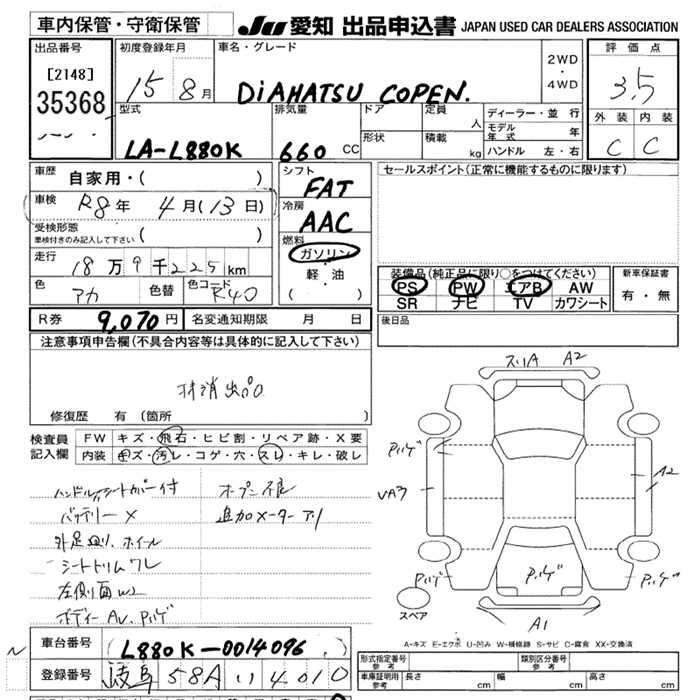 車内保管・守衛保管 JU 愛知 出品申込書 JAPAN USED CAR DEALERS ASSOCIATION
出品番号 初度登録年月 車名・グレード 2WD・4WD 評価点
[2148] 15 8月 DiAHATSU COPEN. 3.5
35368
型式 排気量 ドア 定員 人 ディーラー・並行 外装 内装
LA-L880K 660 CC 形状 積載 kg モデル年式 年 C C
ハンドル 左・右
車歴 自家用・( ) シフト FAT セールスポイント(正常に機能するものに限ります)
車検 R8年 4月(13日) 冷房 AAC
受検形態 ( )
車検付きのみ記入して下さい
燃料 ガソリン・軽油 ( )
走行 18万9千225km
色 アカ 色替 色コード R40
装備品(純正品に限り○をつけてください) 新車保証書
PS PW エアB AW 有・無
SR ナビ TV カワシート
R券 9,070円 名変通知期限 月 日 後日品
注意事項申告欄(不具合内容等は具体的に記入して下さい)
抹消出品
修復歴 有(箇所
検査員記入欄 FW キズ・飛石・ヒビ割・リペア跡・X要
内装 キズ・汚レ・コゲ・穴・スレ・キレ・破レ
ハンドル シートカバー付 オープン不良
バッテリーX 追加メーターアリ
外足廻リ、ホイール
シートトリムワレ
左側面W2
ボディーAU、Pハゲ
スリA A2
Pハゲ
UA3
A2
Pハゲ Pハゲ Pハゲ
スペア A1
A-キズ E-エクボ U-凹み W-補修跡 S-サビ C-腐食 XX-交換済
車台番号 L880K-0014096
登録番号 岐阜 58A い 4010
形式指定番号 参考 類別区分番号 参考
車庫証明用参考 長さ cm 幅 cm 高さ cm